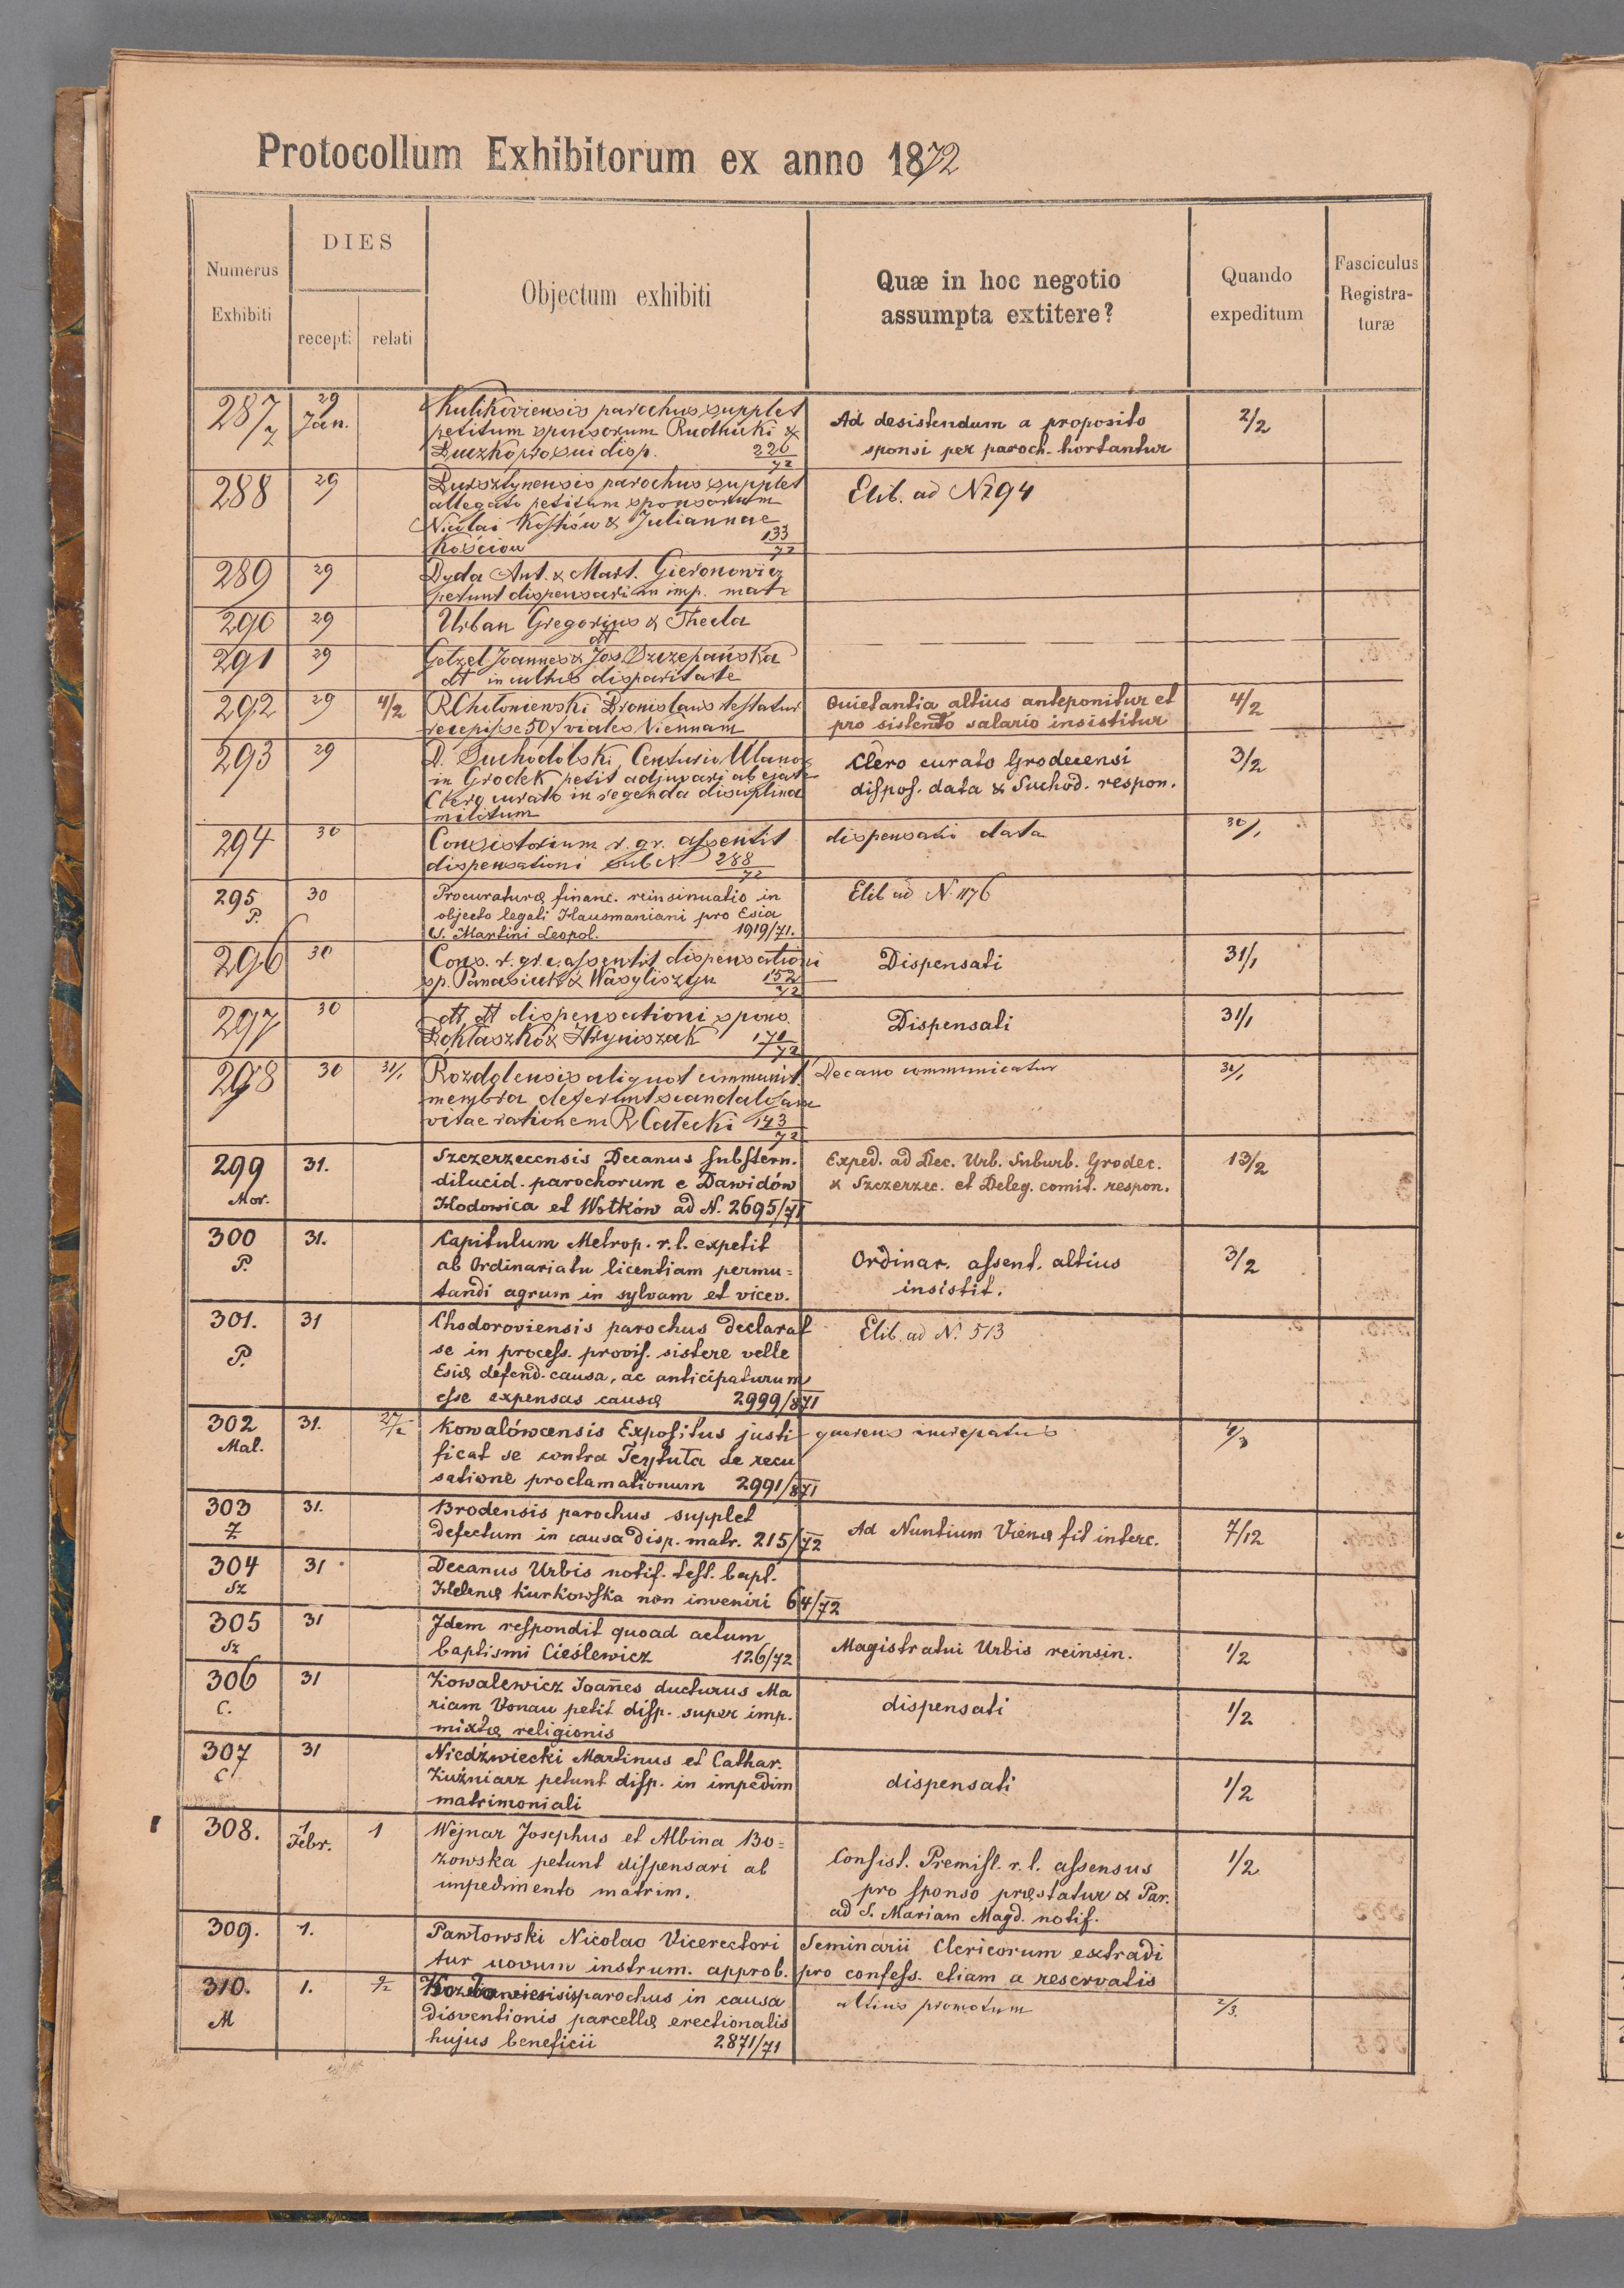 Protocollum Exhibitorum ex anno 1872
Numerus Exhibiti
DIES
recept:
relati
Objectum exhibiti
Quæ in hoc negotio
assumpta extitere?
Quando
expeditum
Fasciculus
Registra-
turæ
287 29 Jan. Kulikoviensis parochus supplet
petitum sponsorum Rudnicki &
Ad desistendum a proposito
sponsi per paroch. hortantur
2/2
Luczko pro sui disp. 226/72
288 29 parochus supplet
allegato petitum sponsorum
Nicolai Kostiów & Juliannae
Kościow 133/72
Elib. ad N 294
289 29 Dyda Ant. & Mart. Gieronowicz
petunt dispensari in imp. matr
290 29 Urban Gregorius & Thecla
dt
291 29 Getzel Joannes & Jos. Szczepańska
dt in cultus disparitate
292 29 4/2 R. Chotoniewski Bronislaus testatur
recepisse 50 f viales Viennam
Quietantia altius anteponitur et
pro sistendo salario insistitur
4/2
293 29 D. Suchodolski, Centurio Ulanor
in Grodek petit adjuvari ab
Clero curato in regenda disciplina
militum
Clero curato Grodecensi
dispos. data & Suchod. respon.
3/2
294 30 Consistorium r. gr. assentit
dispensationi sub N. 288/72
dispensatio data
30/1
295 P. 30 Procuraturæ financ. reinsinuatio in
objecto legati Hausmaniani pro Esia
S. Martini Leopol. 1919/71.
Elib ad N. 1176
296 30 Cons. r. gr. c. assentit dispensationi
sp. Panasiuk & Wasyliszyn 152/72
Dispensati
31/1
297 30 dt dt dispensationi spons.
& Hryniszak 170/72
Dispensati
31/1
298 30 31/1 Rozdolensis aliquot communit.
membra deferunt scandalosam
vitae rationem R. Catecki 143/72
Decano communicatur
31/1
299 Mor. 31. Szczerzecensis Decanus substern.
dilucid. parochorum e Dawidów
Hodowica et Wołków ad N. 2695/71
Exped. ad Dec. Urb. Suburb. Grodec.
& Szczerzec. et Deleg. comit. respon.
13/2
300 P. 31. Capitulum Metrop. r. l. expetit
ab Ordinariatu licentiam permu=
tandi agrum in sylvam et vicev.
Ordinar. assent. altius
insistit.
3/2
301. P. 31 Chodoroviensis parochus declarat
se in process. provis. sistere velle
Esiæ defend. causa, ac anticipaturum
esse expensas causæ 2999/871
Elib. ad N. 513
302 Mal. 31. 27/2 Kowalówcensis Expositus justi
ficat se contra de recu
satione proclamationum 2991/871
querens increpatus
4/3
303 Z 31. Brodensis parochus supplet
defectum in causa disp. matr. 215/72
Ad Nuntium Vienæ fit interc.
7/12
304 Sz 31 Decanus Urbis notif. test. bapt.
Helenæ Kurkowska non inveniri 64/72
305 Sz 31 Idem respondit quoad actum
baptismi Cieślewicz 126/72
Magistratui Urbis reinsin.
1/2
306 C. 31 Kowalewicz Joañes ducturus Ma
riam Vonau petit disp. super imp.
mixtæ religionis
dispensati
1/2
307 C 31 Niedźwiecki Martinus et Cathar.
Kuźniarz petunt disp. in impedim
matrimoniali
dispensati
1/2
308. 1 Febr. 1 Wejnar Josephus et Albina Bo=
zowska petunt dispensari ab
impedimento matrim.
Consist. Premisl. r. l. assensus
pro sponso præstatur & Par.
ad S. Mariam Magd. notif.
1/2
309. 1. Pawłowski Nicolao Vicerectori Seminarii Clericorum extradi
tur novum instrum. approb. pro confess. etiam a reservatis
310. M 1. 2/2 parochus in causa
disventionis parcellæ erectionalis
hujus beneficii 2871/71
altius promotum
2/3.